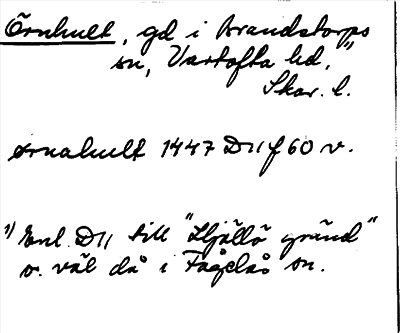 Örnhult, gd i Brandstorps
sn, Vartofta hd, 1)
Skar. l.
Ornahult 1447 D11 f 60 v.
1) Enl. D11 till "Hjällö gränd"
o. väl då i Fågelås sn.